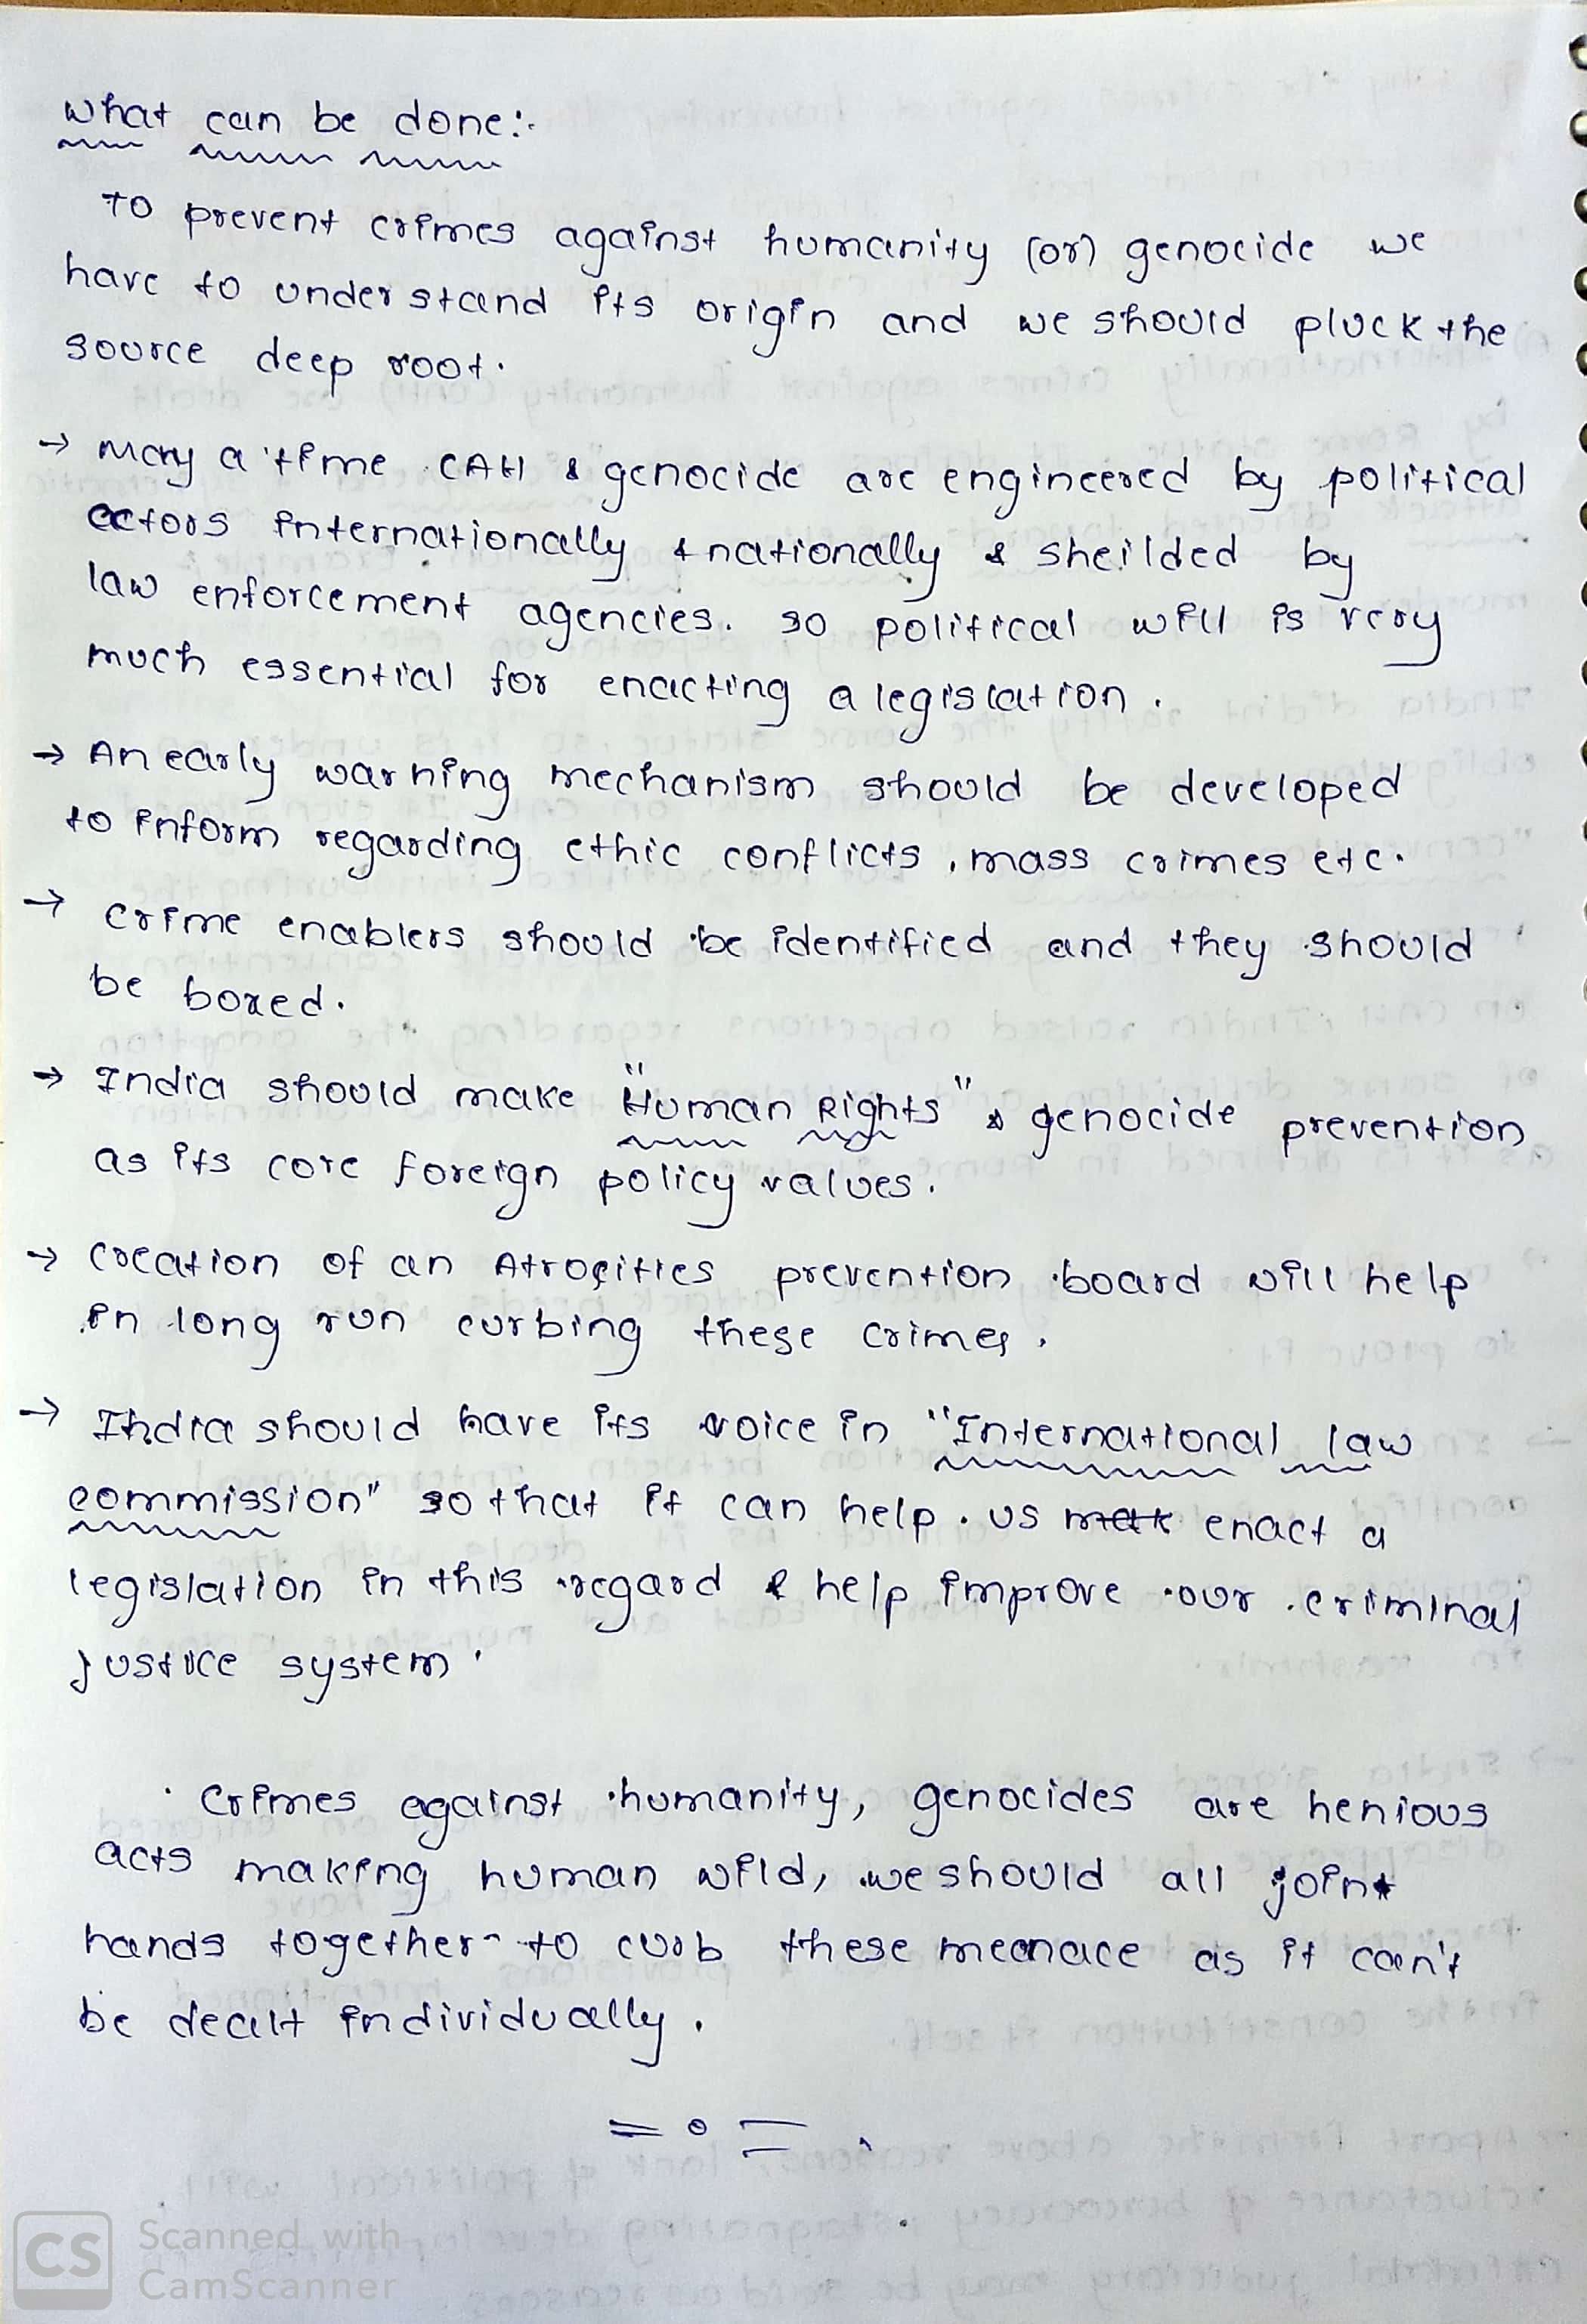 what can be done:
To prevent crimes against humanity (or) genocide we
have to understand its origin and we should pluck the
source deep root.
→ Many a time CAH & genocide are engineered by political
actors internationally & nationally & sheilded by
law enforcement agencies. so political will is very
much essential for enacting a legislation.
→ An early warning mechanism should be developed
to inform regarding ethic conflicts, mass crimes etc.
→ Crime enablers should be identified and they should
be boxed.
→ India should make "Human Rights" & genocide prevention
as its core foreign policy values.
→ Creation of an Atrocities prevention board will help
in long run curbing these crimes.
→ India should have its voice in "International law
commission" so that it can help us enact a
legislation in this regard & help improve our criminal
justice system.
Crimes against humanity, genocides are henious
acts making human wild, we should all joint
hands together to curb these meanace as it can't
be dealt individually.
CS Scanned with
CamScanner